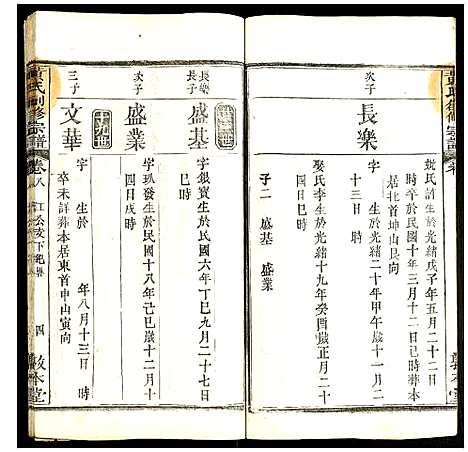 娶氏許生於光緒戊子年五月二十二日
時卒於民國十年三月二十二日巳時葬本
居北首坤山艮向
次子
長樂
字 生於光緒二十年甲午六月二
十三日 時
娶氏李生於光緒十九年癸酉歲正月二十
四日巳時
子二 盛基 盛業
長樂長子
盛基
字銀寶生於民國六年丁巳九月二十七日
巳時
次子
盛業
字玖發生於民國十八年己巳歲十二月十
四日戌時
三子
文華
字 生於 年八月十三日 時
卒未詳葬本居東首申山寅向
黃氏創修宗譜
卷八
四
敦本堂